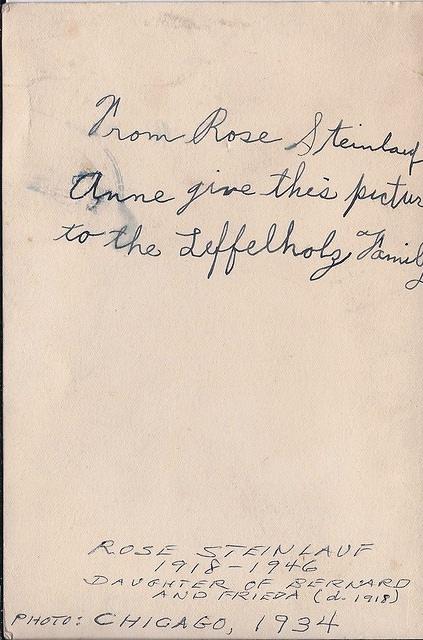 From Rose Steinlauf
Anne give this pictur
to the Leffelholz Famil
ROSE STEINLAUF
1918-1946
DAUGHTER OF BERNARD
AND FRIEDA (d. 1918)
PHOTO: CHICAGO, 1934